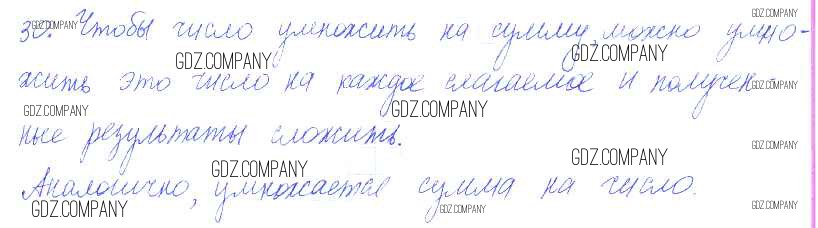 30. Чтобы число умножить на сумму, можно умно-
жить это число на каждое слагаемое и получен-
ные результаты сложить.
Аналогично, умножается сумма на число.
GDZ.COMPANY
GDZ.COMPANY
GDZ.COMPANY
GDZ.COMPANY
GDZ.COMPANY
GDZ.COMPANY
GDZ.COMPANY
GDZ.COMPANY
GDZ.COMPANY
GDZ.COMPANY
GDZ.COMPANY
GDZ.COMPANY
GDZ.COMPANY